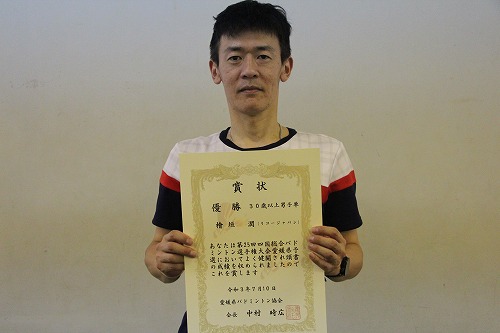 賞状
優勝 30歳以上男子単
檜垣 潤 (リコージャパン)
あなたは第25回四国総合バド
ミントン選手権大会愛媛県予
選においてよく健闘され頭書
の成績を収められましたので
これを賞します
令和3年7月10日
愛媛県バドミントン協会
会長 中村 時広